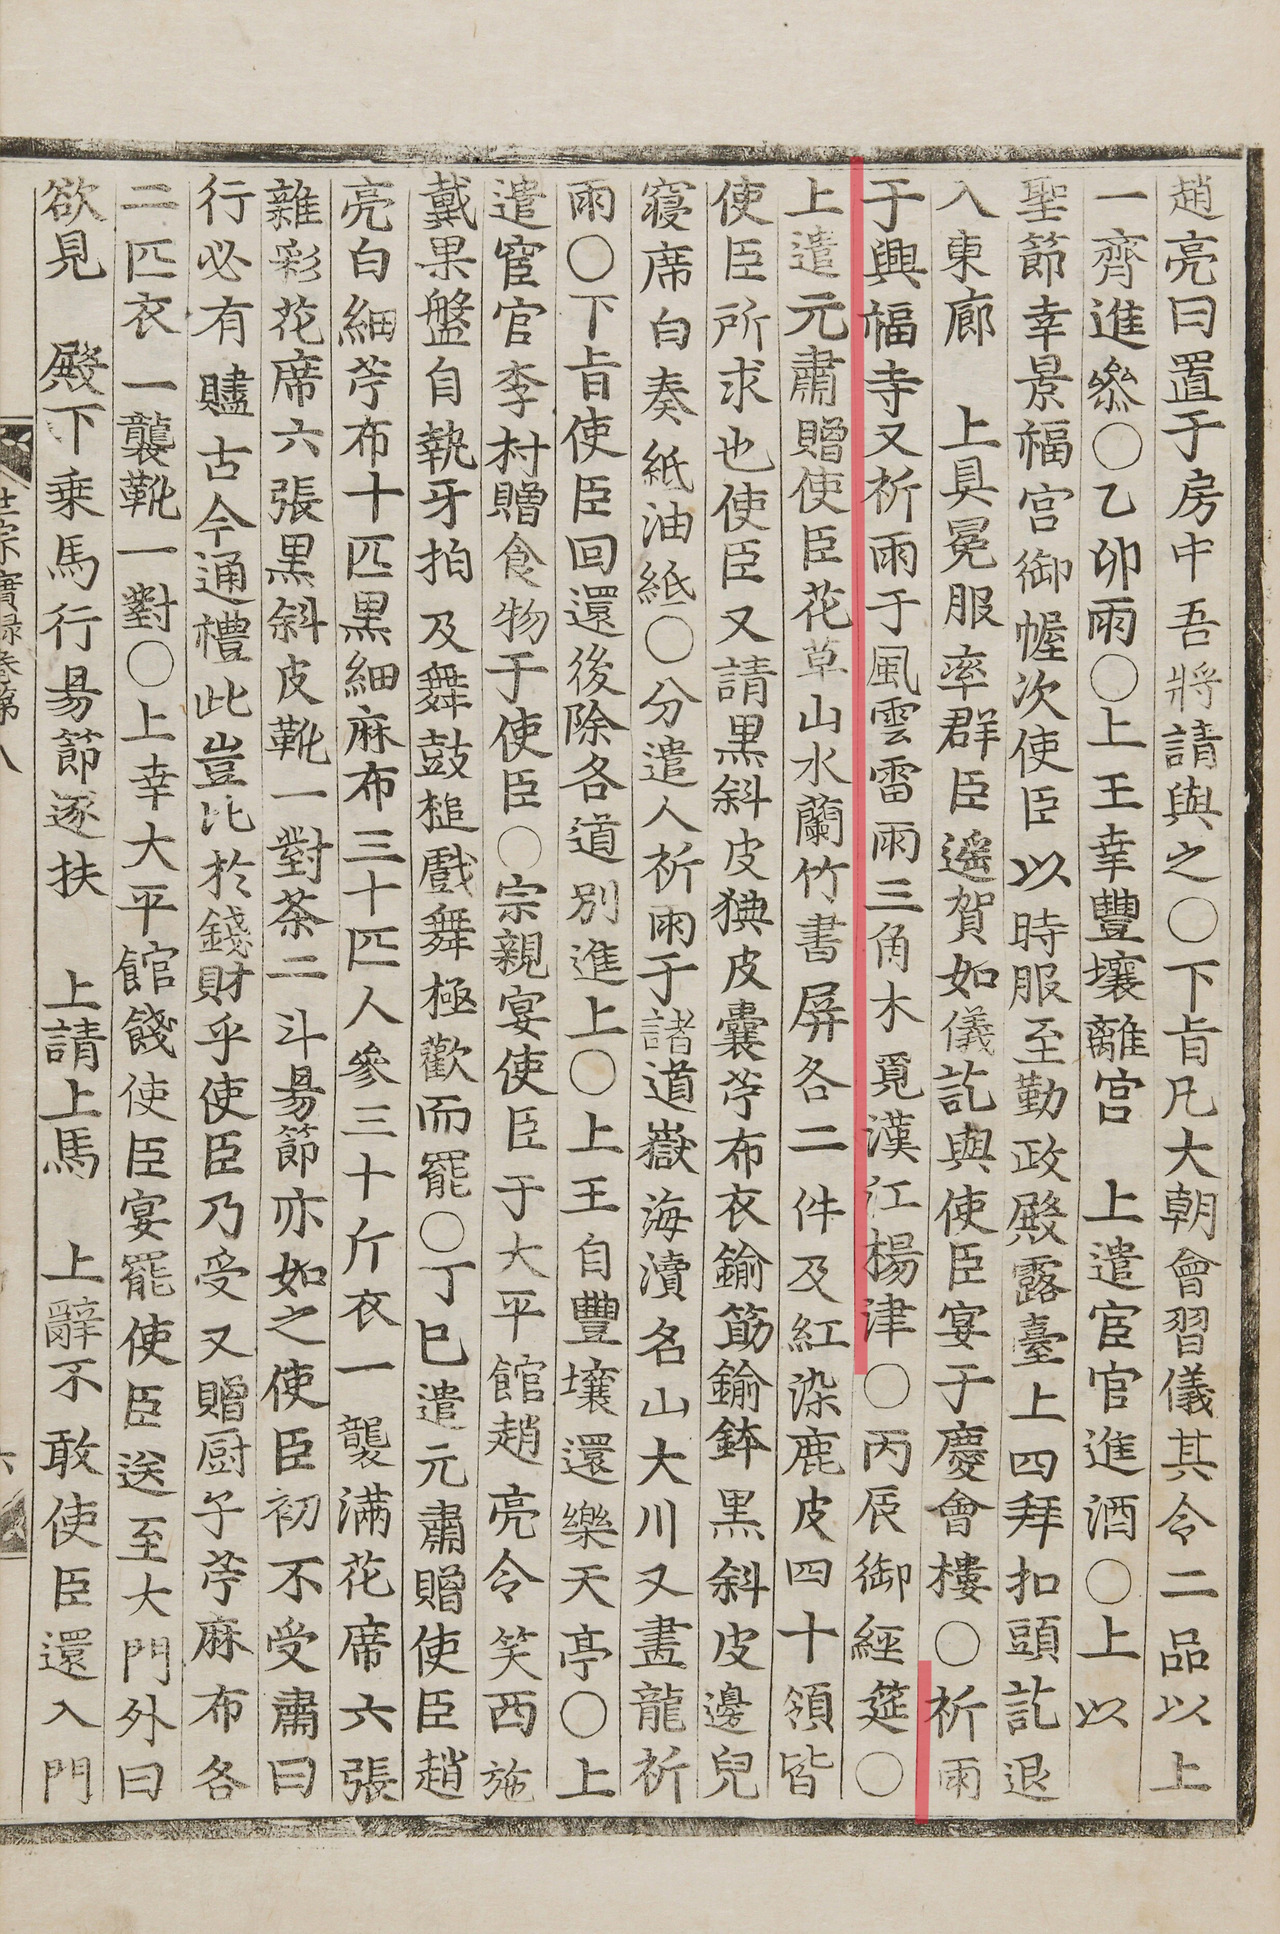 趙亮曰置于房中吾將請與之○下旨凡大朝會習儀其令二品以上
一齊進叅○乙卯雨○上王幸豐壤離宮 上遣宦官進酒○上以
聖節幸景福宮御幄次使臣以時服至勤政殿露臺上四拜扣頭訖退
入東廊 上具冕服率群臣遙賀如儀訖與使臣宴于慶會樓○祈雨
于興福寺又祈雨于風雲雷雨三角木覓漢江楊津○丙辰御經筵○
上遣元肅贈使臣花草山水蘭竹書屛各二件及紅染鹿皮四十領皆
使臣所求也使臣又請黑斜皮㹠皮囊苧布衣鍮筯鍮鉢黑斜皮邊兒
寢席白奏紙油紙○分遣人祈雨于諸道嶽海瀆名山大川又畫龍祈
雨○下旨使臣回還後除各道別進上○上王自豐壤還樂天亭○上
遣宦官李村贈食物于使臣○宗親宴使臣于大平館趙亮令笑西施
戴果盤自執牙拍及舞鼓槌戲舞極歡而罷○丁巳遣元肅贈使臣趙
亮白細苧布十匹黑細麻布三十匹人參三十斤衣一襲滿花席六張
雜彩花席六張黑斜皮靴一對茶二斗昜節亦如之使臣初不受肅曰
行必有贐古今通禮此豈比於錢財乎使臣乃受又贈厨子苧麻布各
二匹衣一襲靴一對○上幸大平館餞使臣宴罷使臣送至大門外曰
欲見 殿下乗馬行昜節逐扶 上請上馬 上辭不敢使臣還入門
世宗實錄卷第八
六